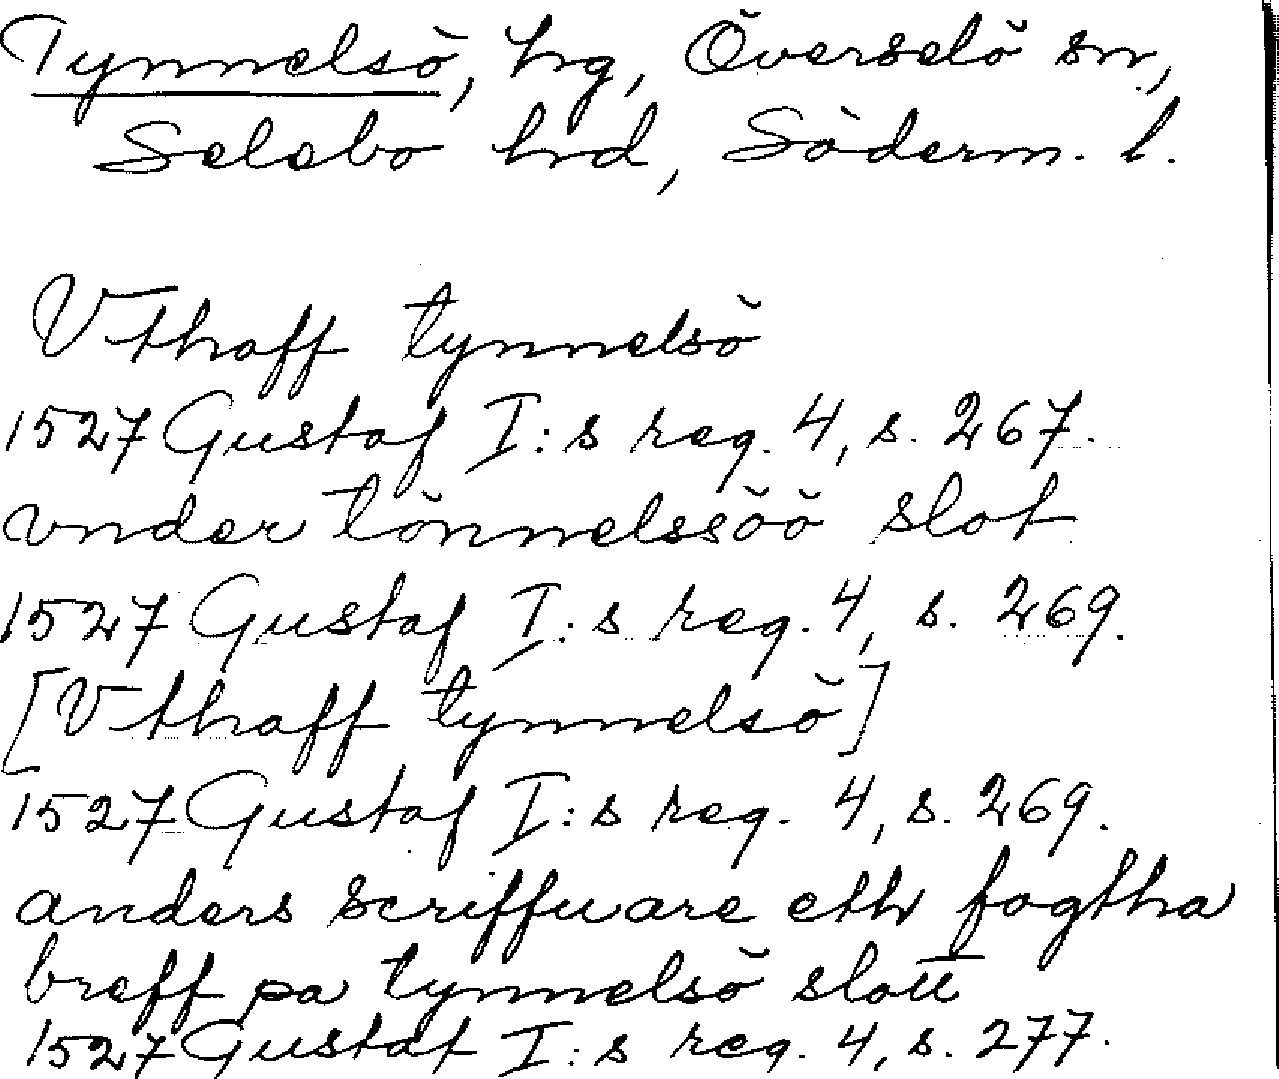 Tynnelsö, hg, Överselö sn,
Selebo hrd, Söderm. l.
Vthaff tynnelsö
1527 Gustaf I:s reg. 4, s. 267.
vnder tönnelssöö slot
1527 Gustaf I:s reg. 4, s. 269.
[Vthaff tynnelsö]
1527 Gustaf I:s reg. 4, s. 269.
anders scriffuare eth fogtha
breff pa tynnelsö slott
1527 Gustaf I:s reg. 4, s. 277.